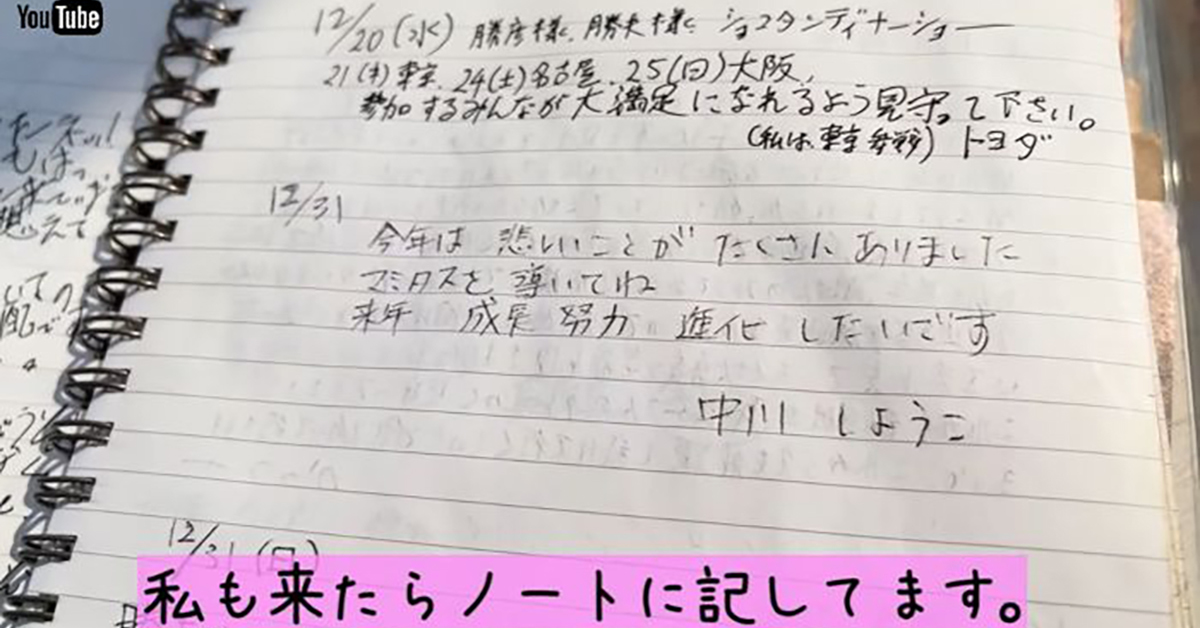 YouTube
12/20(水) 勝彦様、勝夫様 ショスタンディナーショー
21(木)東京、24(土)名古屋、25(日)大阪、
参加するみんなが大満足になれるよう見守って下さい。
(私は、東京参戦) トヨダ
12/31
今年は 悲しいことが たくさん ありました
マミタスを 導いてね
来年 成果 努力 進化 したいごす
中川 しようこ
12/31(日)
私も来たらノートに記してます。